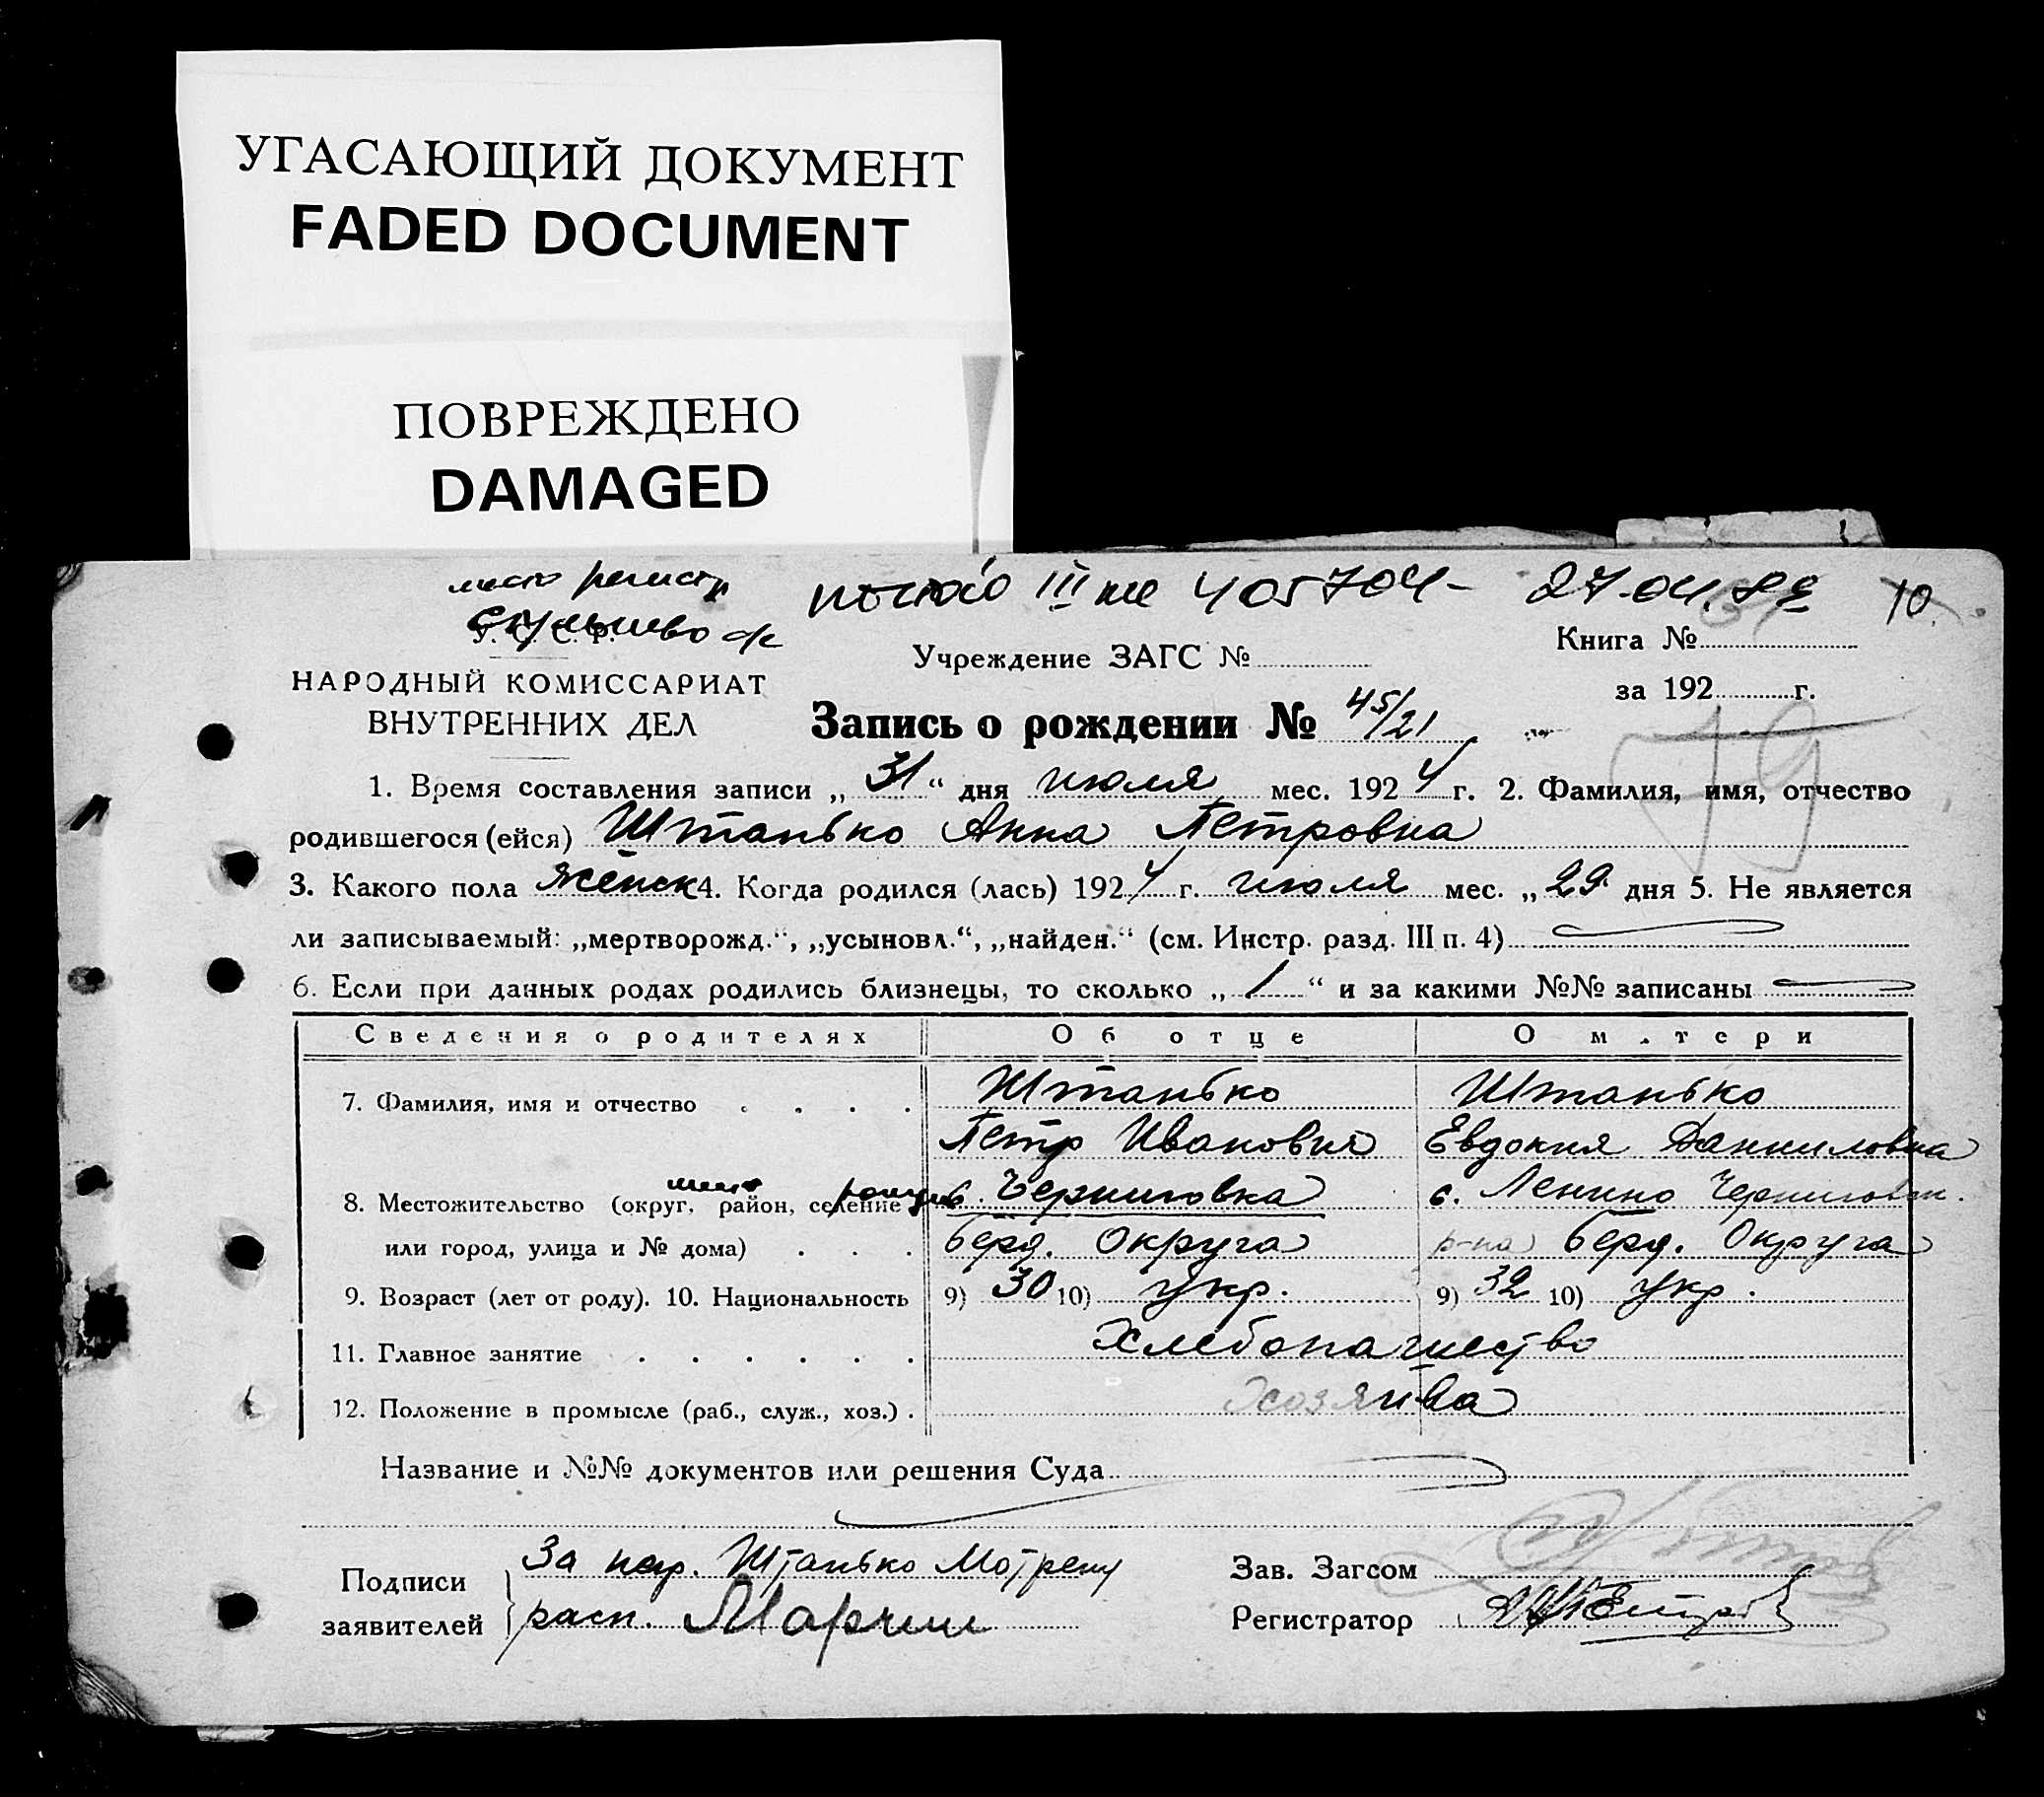 УГАСАЮЩИЙ ДОКУМЕНТ
FADED DOCUMENT
ПОВРЕЖДЕНО
DAMAGED
место регистр
У. С. С. Р.
III 405704 - 27-04.
10
Учреждение ЗАГС №
Книга №
НАРОДНЫЙ КОМИССАРИАТ
ВНУТРЕННИХ ДЕЛ
за 192 г.
Запись о рождении № 45/21
19
1. Время составления записи „31“ дня июля мес. 1924 г. 2. Фамилия, имя, отчество
родившегося (ейся) Штанько Анна Петровна
3. Какого пола женск 4. Когда родился (лась) 1924 г. июля мес. „29 дня 5. Не является
ли записываемый: „мертворожд.“, „усыновл.“, „найден.“ (см. Инстр. разд. III п. 4)
6. Если при данных родах родились близнецы, то сколько „1“ и за какими №№ записаны
Сведения о родителях Об отце О м.тери
7. Фамилия, имя и отчество . . . . Штанько Штанько
Петр Иванович Евдокия Данииловна
8. Местожительство (округ, район, селение с. Черниговка с. Ленино Черниговск.
или город, улица и № дома) . . . Берд. Округа р-на Берд. Округа
9. Возраст (лет от роду). 10. Национальность 9) 30 10) Укр. 9) 32 10) Укр.
11. Главное занятие . . . . . . Хлебопашество
12. Положение в промысле (раб., служ., хоз.) . Хозяива
Название и №№ документов или решения Суда
Подписи заявителей
За нер. Штанько Мотрены
расп.
Зав. Загсом
Регистратор